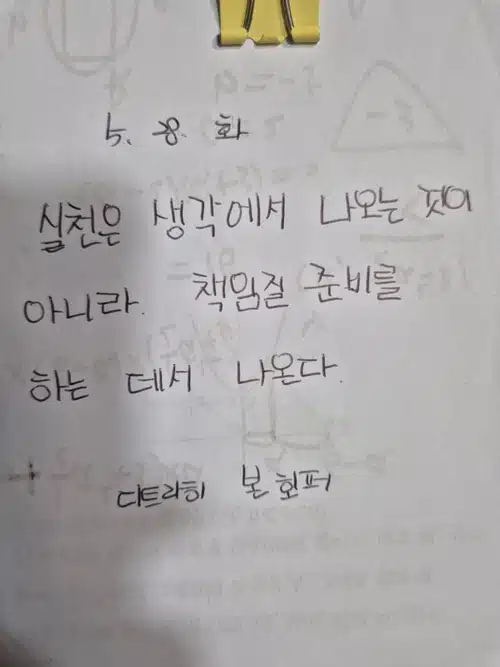 5. 8. 화
실천은 생각에서 나오는 것이
아니라. 책임질 준비를
하는 데서 나온다.
디트리히 본 회퍼